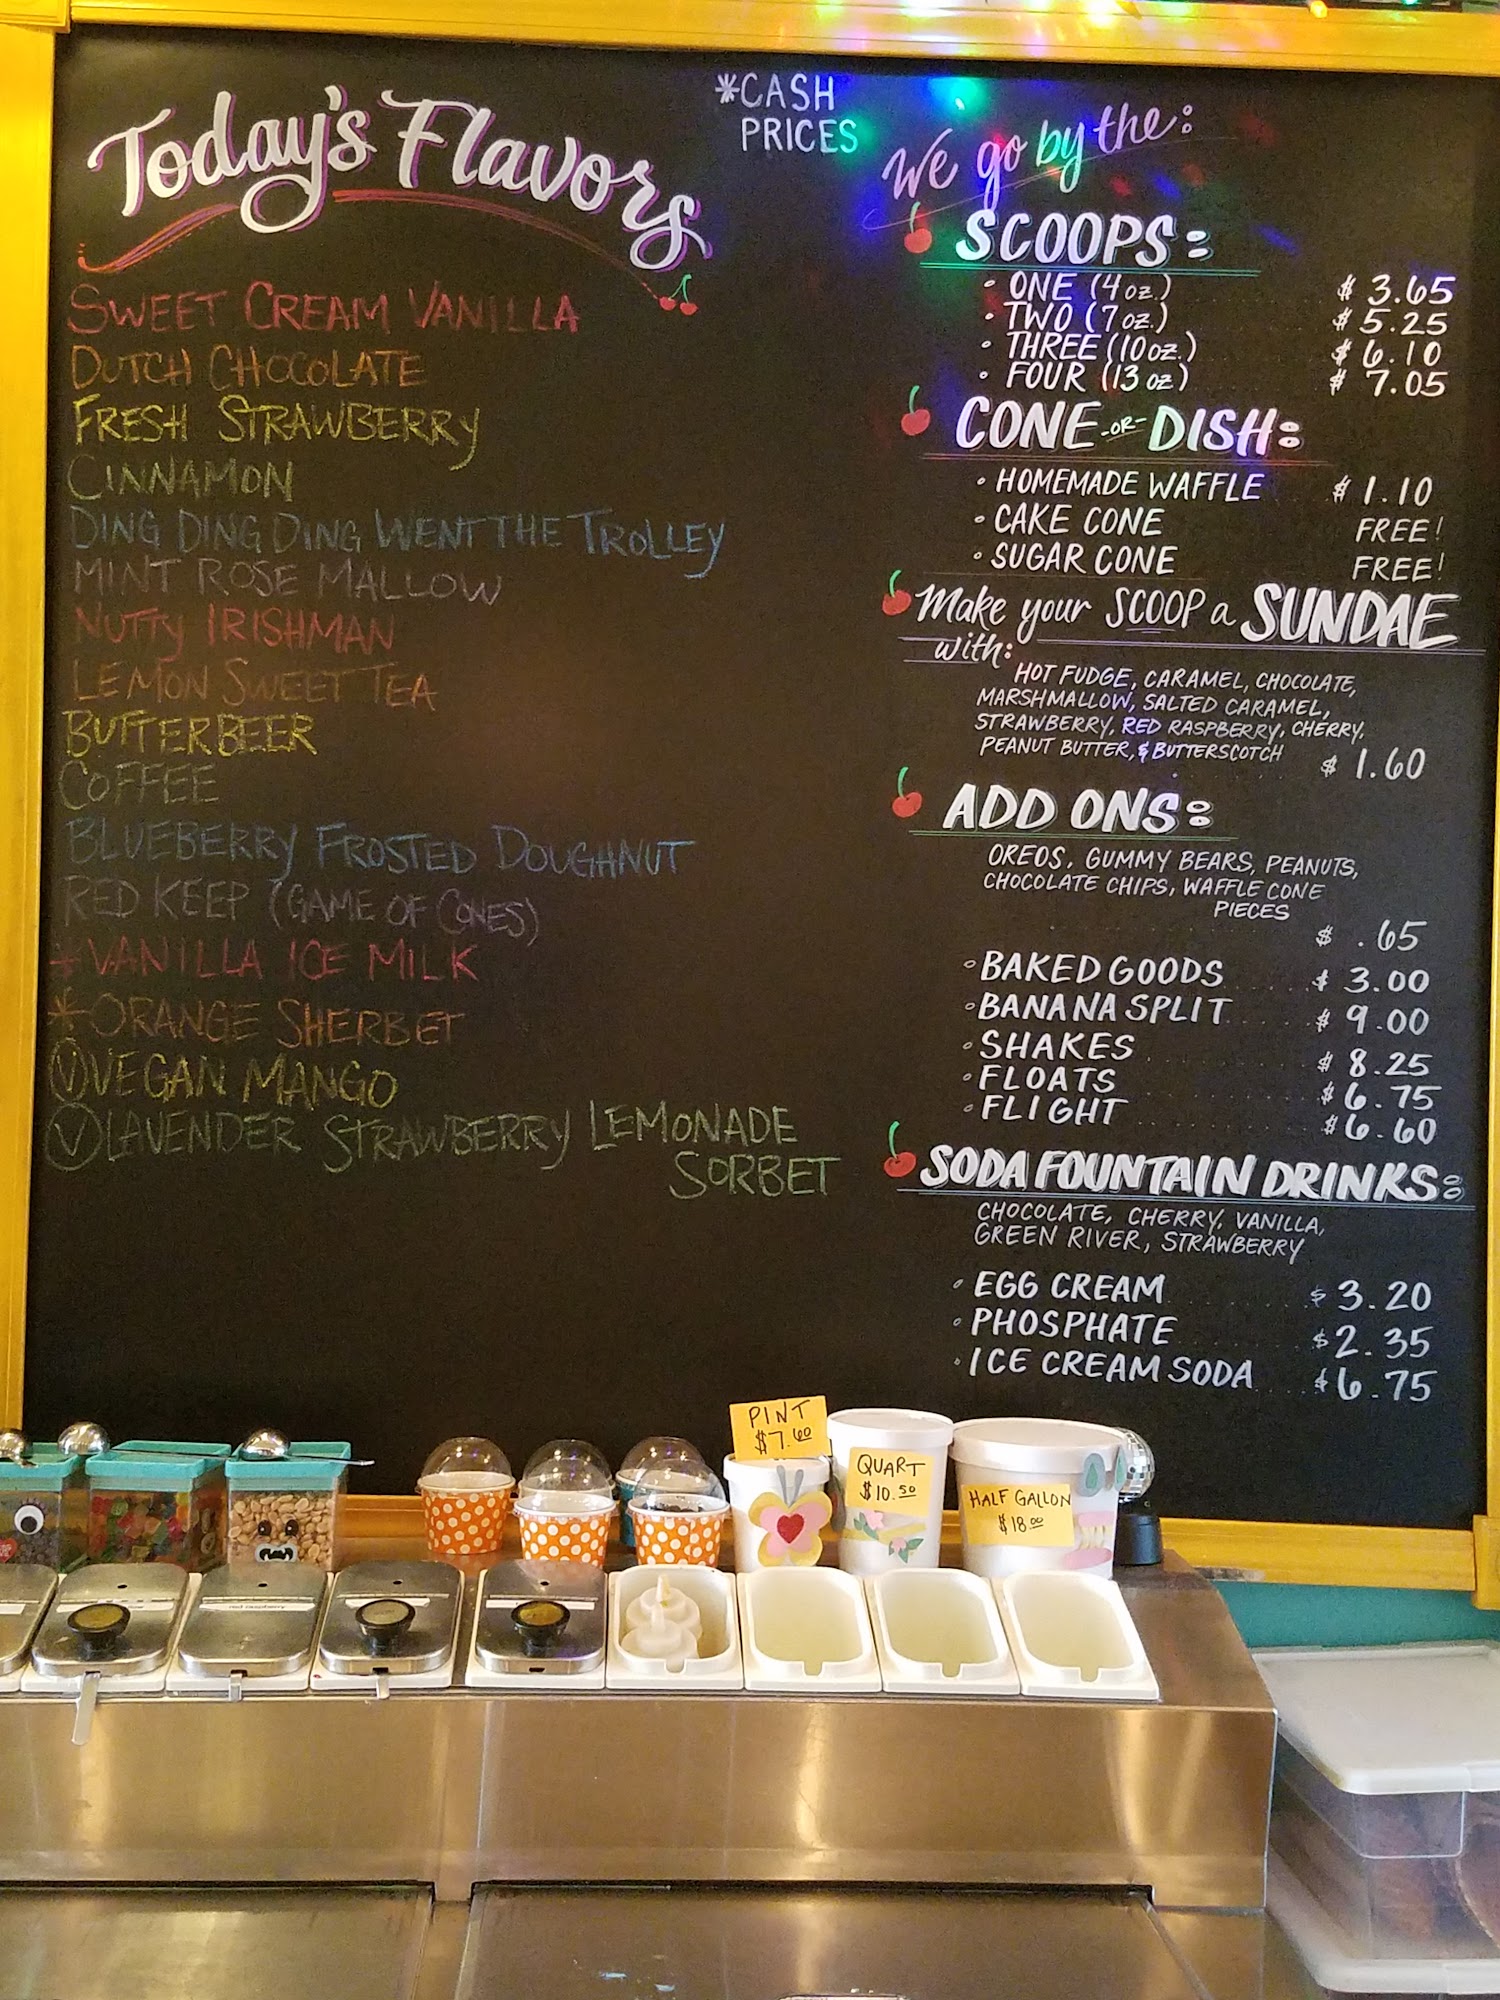 Today's Flavors
SWEET CREAM VANILLA
DUTCH CHOCOLATE
FRESH STRAWBERRY
CINNAMON
DING DING DING WENT THE TROLLEY
MINT ROSE MALLOW
NUTTY IRISHMAN
LEMON SWEET TEA
BUTTERBEER
COFFEE
BLUEBERRY FROSTED DOUGHNUT
RED KEEP (GAME OF CONES)
*VANILLA ICE MILK
*ORANGE SHERBET
Ⓥ VEGAN MANGO
Ⓥ LAVENDER STRAWBERRY LEMONADE
SORBET
*CASH
PRICES
We go by the:
SCOOPS:
• ONE (4 oz.) $ 3.65
• TWO (7 oz.) $ 5.25
• THREE (10 oz.) $ 6.10
• FOUR (13 oz) $ 7.05
CONE -OR- DISH:
• HOMEMADE WAFFLE $ 1.10
• CAKE CONE FREE!
• SUGAR CONE FREE!
Make your SCOOP a SUNDAE
with:
HOT FUDGE, CARAMEL, CHOCOLATE,
MARSHMALLOW, SALTED CARAMEL,
STRAWBERRY, RED RASPBERRY, CHERRY,
PEANUT BUTTER, & BUTTERSCOTCH $ 1.60
ADD ONS:
OREOS, GUMMY BEARS, PEANUTS,
CHOCOLATE CHIPS, WAFFLE CONE
PIECES
$ .65
• BAKED GOODS $ 3.00
• BANANA SPLIT $ 9.00
• SHAKES $ 8.25
• FLOATS $ 6.75
• FLIGHT $ 6.60
SODA FOUNTAIN DRINKS:
CHOCOLATE, CHERRY, VANILLA,
GREEN RIVER, STRAWBERRY
• EGG CREAM $ 3.20
• PHOSPHATE $ 2.35
• ICE CREAM SODA $ 6.75
PINT
$7.60
QUART
$10.50
HALF GALLON
$18.00
red raspberry